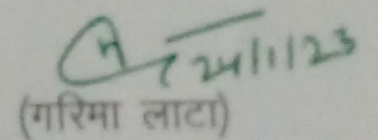 24/1/23
(गरिमा लाटा)